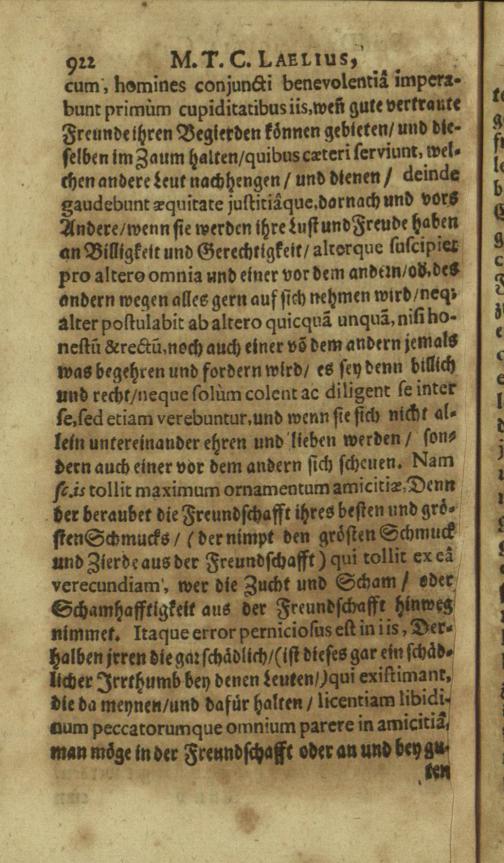 922 M. T. C. LAELIUS,
cum, homines conjuncti benevolentiâ impera-
bunt primùm cupiditatibus iis, weñ gute vertraute
Freunde ihren Begierden können gebieten / und die-
selben im Zaum halten / quibus cæteri serviunt, wel-
chen andere Leut nachhengen / und dienen / deinde
gaudebunt æquitate justitiâque, darnach und vors
Andere / wenn sie werden ihre Lust und Freude haben
an Billigkeit und Gerechtigkeit / alterque suscipiet
pro altero omnia und einer vor dem andern / od. des
andern wegen alles gern auf sich nehmen wird / neq;
alter postulabit ab altero quicquã unquã, nisi ho-
nestũ & rectũ, noch auch einer võ dem andern jemals
was begehren und fordern wird / es sey denn billich
und recht / neque solùm colent ac diligent se inter
se, sed etiam verebuntur, und wenn sie sich nicht al-
lein untereinander ehren und lieben werden / son-
dern auch einer vor dem andern sich scheuen. Nam
sc. is tollit maximum ornamentum amicitiæ, Denn
der beraubet die Freundschafft ihres besten und grö-
sten Schmucks / (der nimpt den grösten Schmuck
und Zierde aus der Freundschafft) qui tollit ex eâ
verecundiam, wer die Zucht und Scham / oder
Schamhafftigkeit aus der Freundschafft hinweg
nimmet. Itaque error perniciosus est in iis, Der-
halben jrren die gar schädlich / (ist dieses gar ein schäd-
licher Irrthumb bey denen Leuten /) qui existimant,
die da meynen / und dafür halten / licentiam libidi-
num peccatorumque omnium parere in amicitiâ,
man möge in der Freundschafft oder an und bey gu-
ten